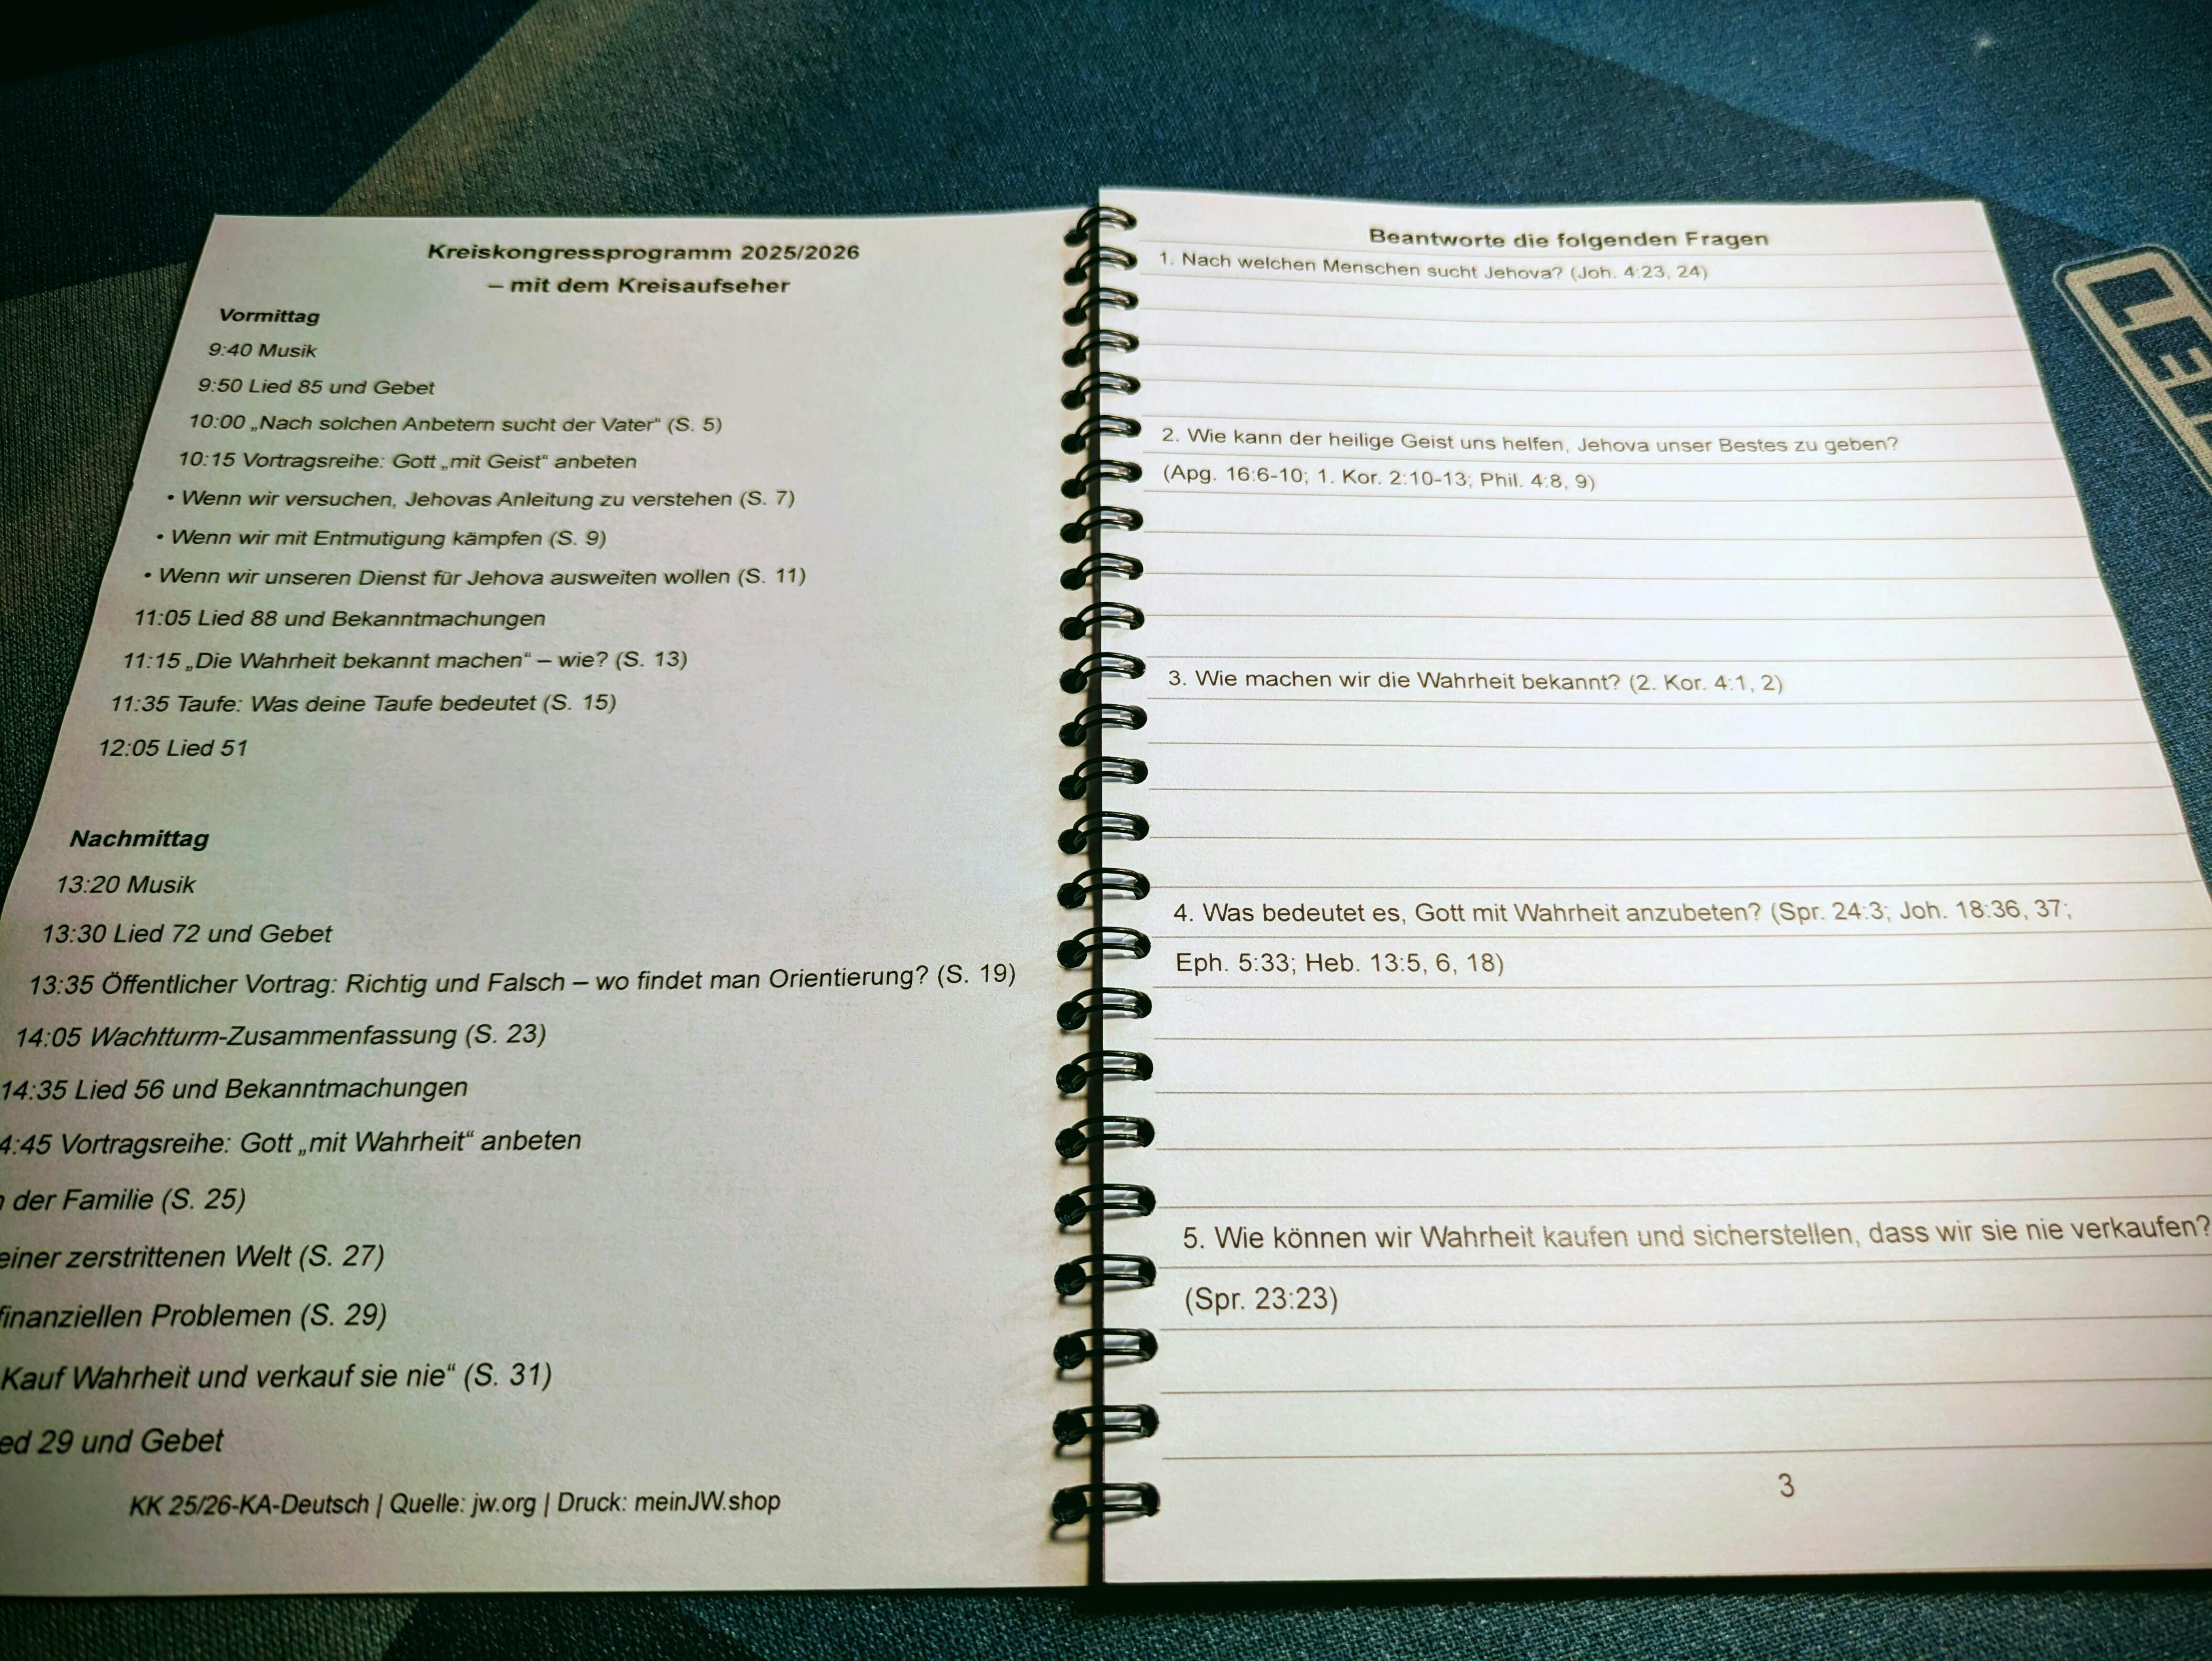 Kreiskongressprogramm 2025/2026
– mit dem Kreisaufseher
Vormittag
9:40 Musik
9:50 Lied 85 und Gebet
10:00 „Nach solchen Anbetern sucht der Vater“ (S. 5)
10:15 Vortragsreihe: Gott „mit Geist“ anbeten
• Wenn wir versuchen, Jehovas Anleitung zu verstehen (S. 7)
• Wenn wir mit Entmutigung kämpfen (S. 9)
• Wenn wir unseren Dienst für Jehova ausweiten wollen (S. 11)
11:05 Lied 88 und Bekanntmachungen
11:15 „Die Wahrheit bekannt machen“ – wie? (S. 13)
11:35 Taufe: Was deine Taufe bedeutet (S. 15)
12:05 Lied 51
Nachmittag
13:20 Musik
13:30 Lied 72 und Gebet
13:35 Öffentlicher Vortrag: Richtig und Falsch – wo findet man Orientierung? (S. 19)
14:05 Wachtturm-Zusammenfassung (S. 23)
14:35 Lied 56 und Bekanntmachungen
4:45 Vortragsreihe: Gott „mit Wahrheit“ anbeten
der Familie (S. 25)
einer zerstrittenen Welt (S. 27)
finanziellen Problemen (S. 29)
Kauf Wahrheit und verkauf sie nie“ (S. 31)
ed 29 und Gebet
KK 25/26-KA-Deutsch | Quelle: jw.org | Druck: meinJW.shop
Beantworte die folgenden Fragen
1. Nach welchen Menschen sucht Jehova? (Joh. 4:23, 24)
2. Wie kann der heilige Geist uns helfen, Jehova unser Bestes zu geben?
(Apg. 16:6-10; 1. Kor. 2:10-13; Phil. 4:8, 9)
3. Wie machen wir die Wahrheit bekannt? (2. Kor. 4:1, 2)
4. Was bedeutet es, Gott mit Wahrheit anzubeten? (Spr. 24:3; Joh. 18:36, 37;
Eph. 5:33; Heb. 13:5, 6, 18)
5. Wie können wir Wahrheit kaufen und sicherstellen, dass wir sie nie verkaufen?
(Spr. 23:23)
3